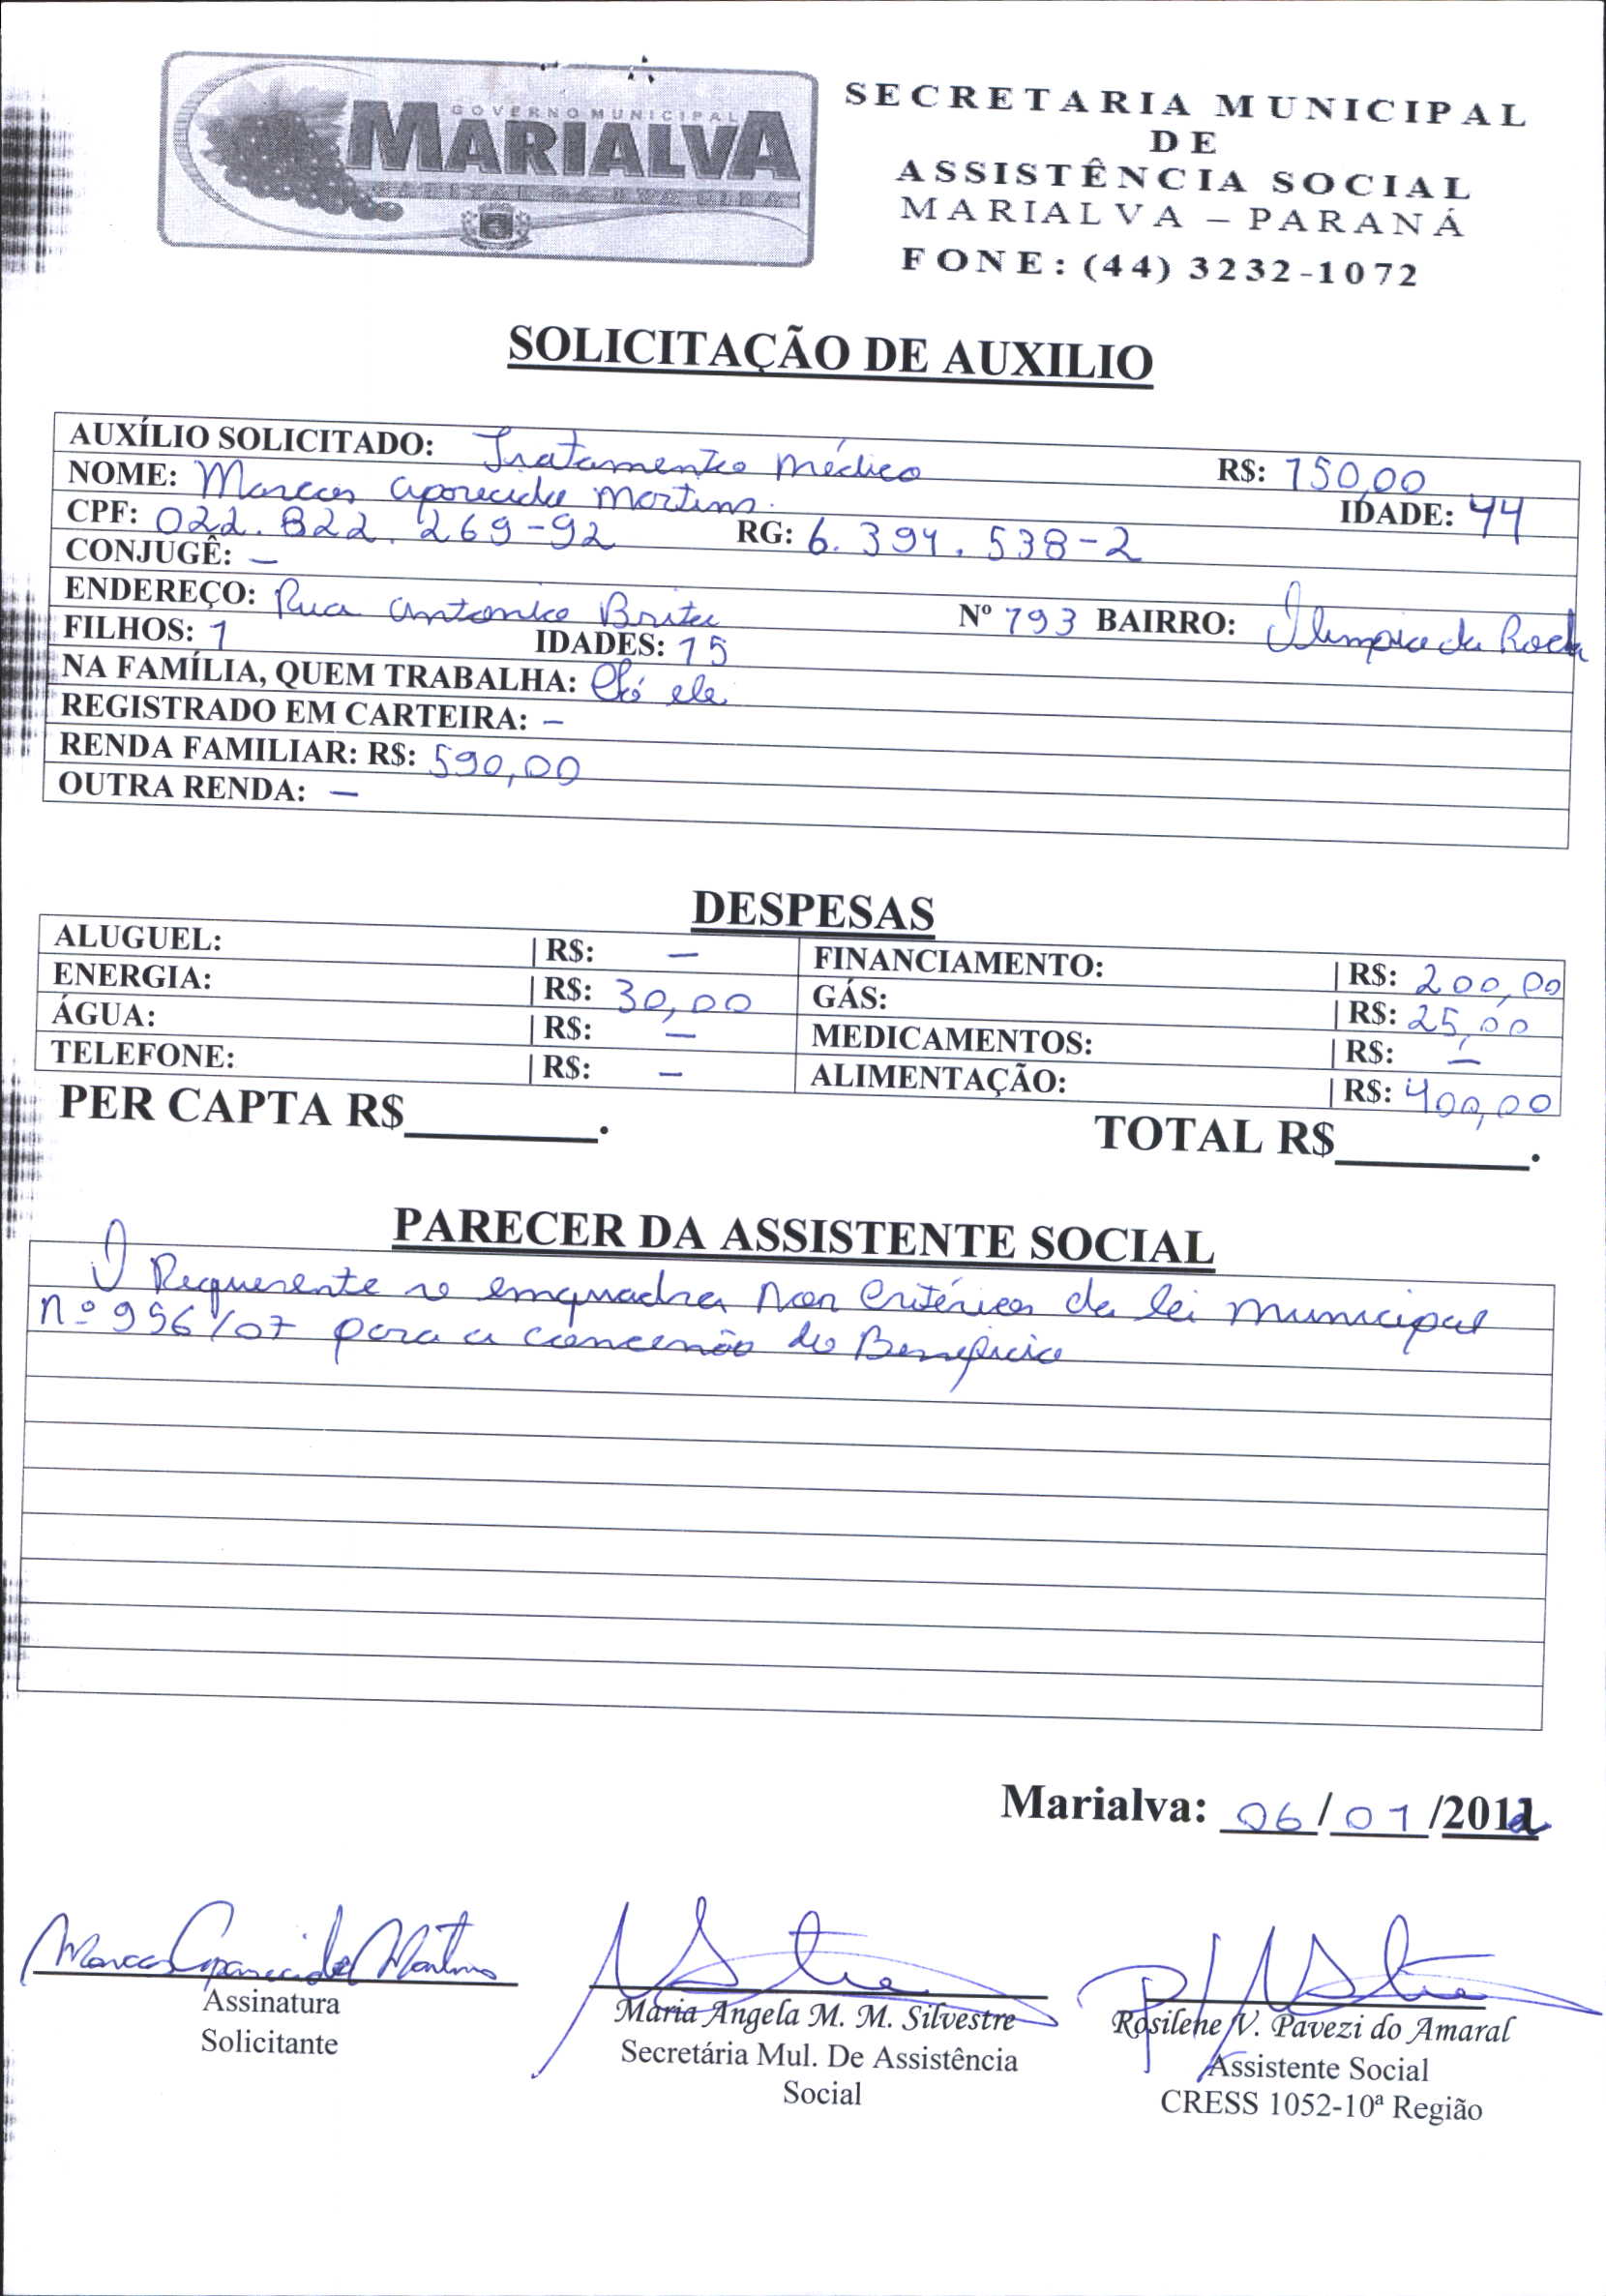 GOVERNO MUNICIPAL
MARIALVA
SECRETARIA MUNICIPAL
DE
ASSISTÊNCIA SOCIAL
MARIALVA – PARANÁ
FONE: (44) 3232-1072
SOLICITAÇÃO DE AUXILIO
AUXÍLIO SOLICITADO: Tratamento Médico R$: 150,00
NOME: Marcos Aparecido Martins. IDADE: 44
CPF: 022.822.269-92 RG: 6.394.538-2
CONJUGÊ: –
ENDEREÇO: Rua Antonio Brito Nº 793 BAIRRO: Olimpio da Rocha
FILHOS: 1 IDADES: 15
NA FAMÍLIA, QUEM TRABALHA: Só ele
REGISTRADO EM CARTEIRA: –
RENDA FAMILIAR: R$: 590,00
OUTRA RENDA: –
DESPESAS
ALUGUEL: | R$: – FINANCIAMENTO: | R$: 200,00
ENERGIA: | R$: 30,00 GÁS: | R$: 25,00
ÁGUA: | R$: – MEDICAMENTOS: | R$: –
TELEFONE: | R$: – ALIMENTAÇÃO: | R$: 400,00
PER CAPTA R$________. TOTAL R$________.
PARECER DA ASSISTENTE SOCIAL
O Requerente se enquadra nos Critérios da lei municipal
nº 996/07 para a concessão do Beneficio
Marialva: 06/01/2012
Marcos Aparecido Martins
Assinatura
Solicitante
Maria Angela M. M. Silvestre
Secretária Mul. De Assistência
Social
Rosilene V. Pavezi do Amaral
Assistente Social
CRESS 1052-10ª Região